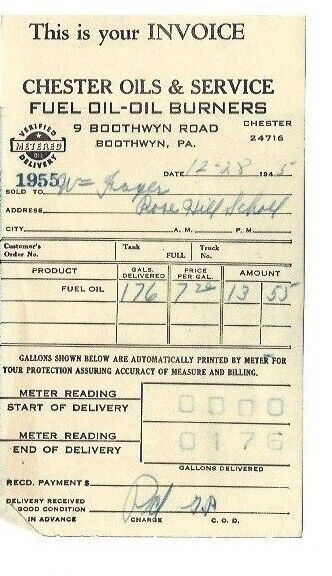 This is your INVOICE
CHESTER OILS & SERVICE
FUEL OIL-OIL BURNERS
9 BOOTHWYN ROAD
BOOTHWYN, PA.
CHESTER
24716
VERIFIED
METERED
OIL
DELIVERY
DATE 12-28 1945
1955
SOLD TO Wm
ADDRESS Rose Hill School
CITY A. M. P. M.
Customer's
Order No.
Tank
FULL
Truck
No.
PRODUCT GALS. DELIVERED PRICE PER GAL. AMOUNT
FUEL OIL 176 13 55
GALLONS SHOWN BELOW ARE AUTOMATICALLY PRINTED BY METER FOR
YOUR PROTECTION ASSURING ACCURACY OF MEASURE AND BILLING.
METER READING
START OF DELIVERY 0000
METER READING
END OF DELIVERY 0176
GALLONS DELIVERED
RECD. PAYMENT $
DELIVERY RECEIVED
GOOD CONDITION
IN ADVANCE
Pd
CHARGE C. O. D.